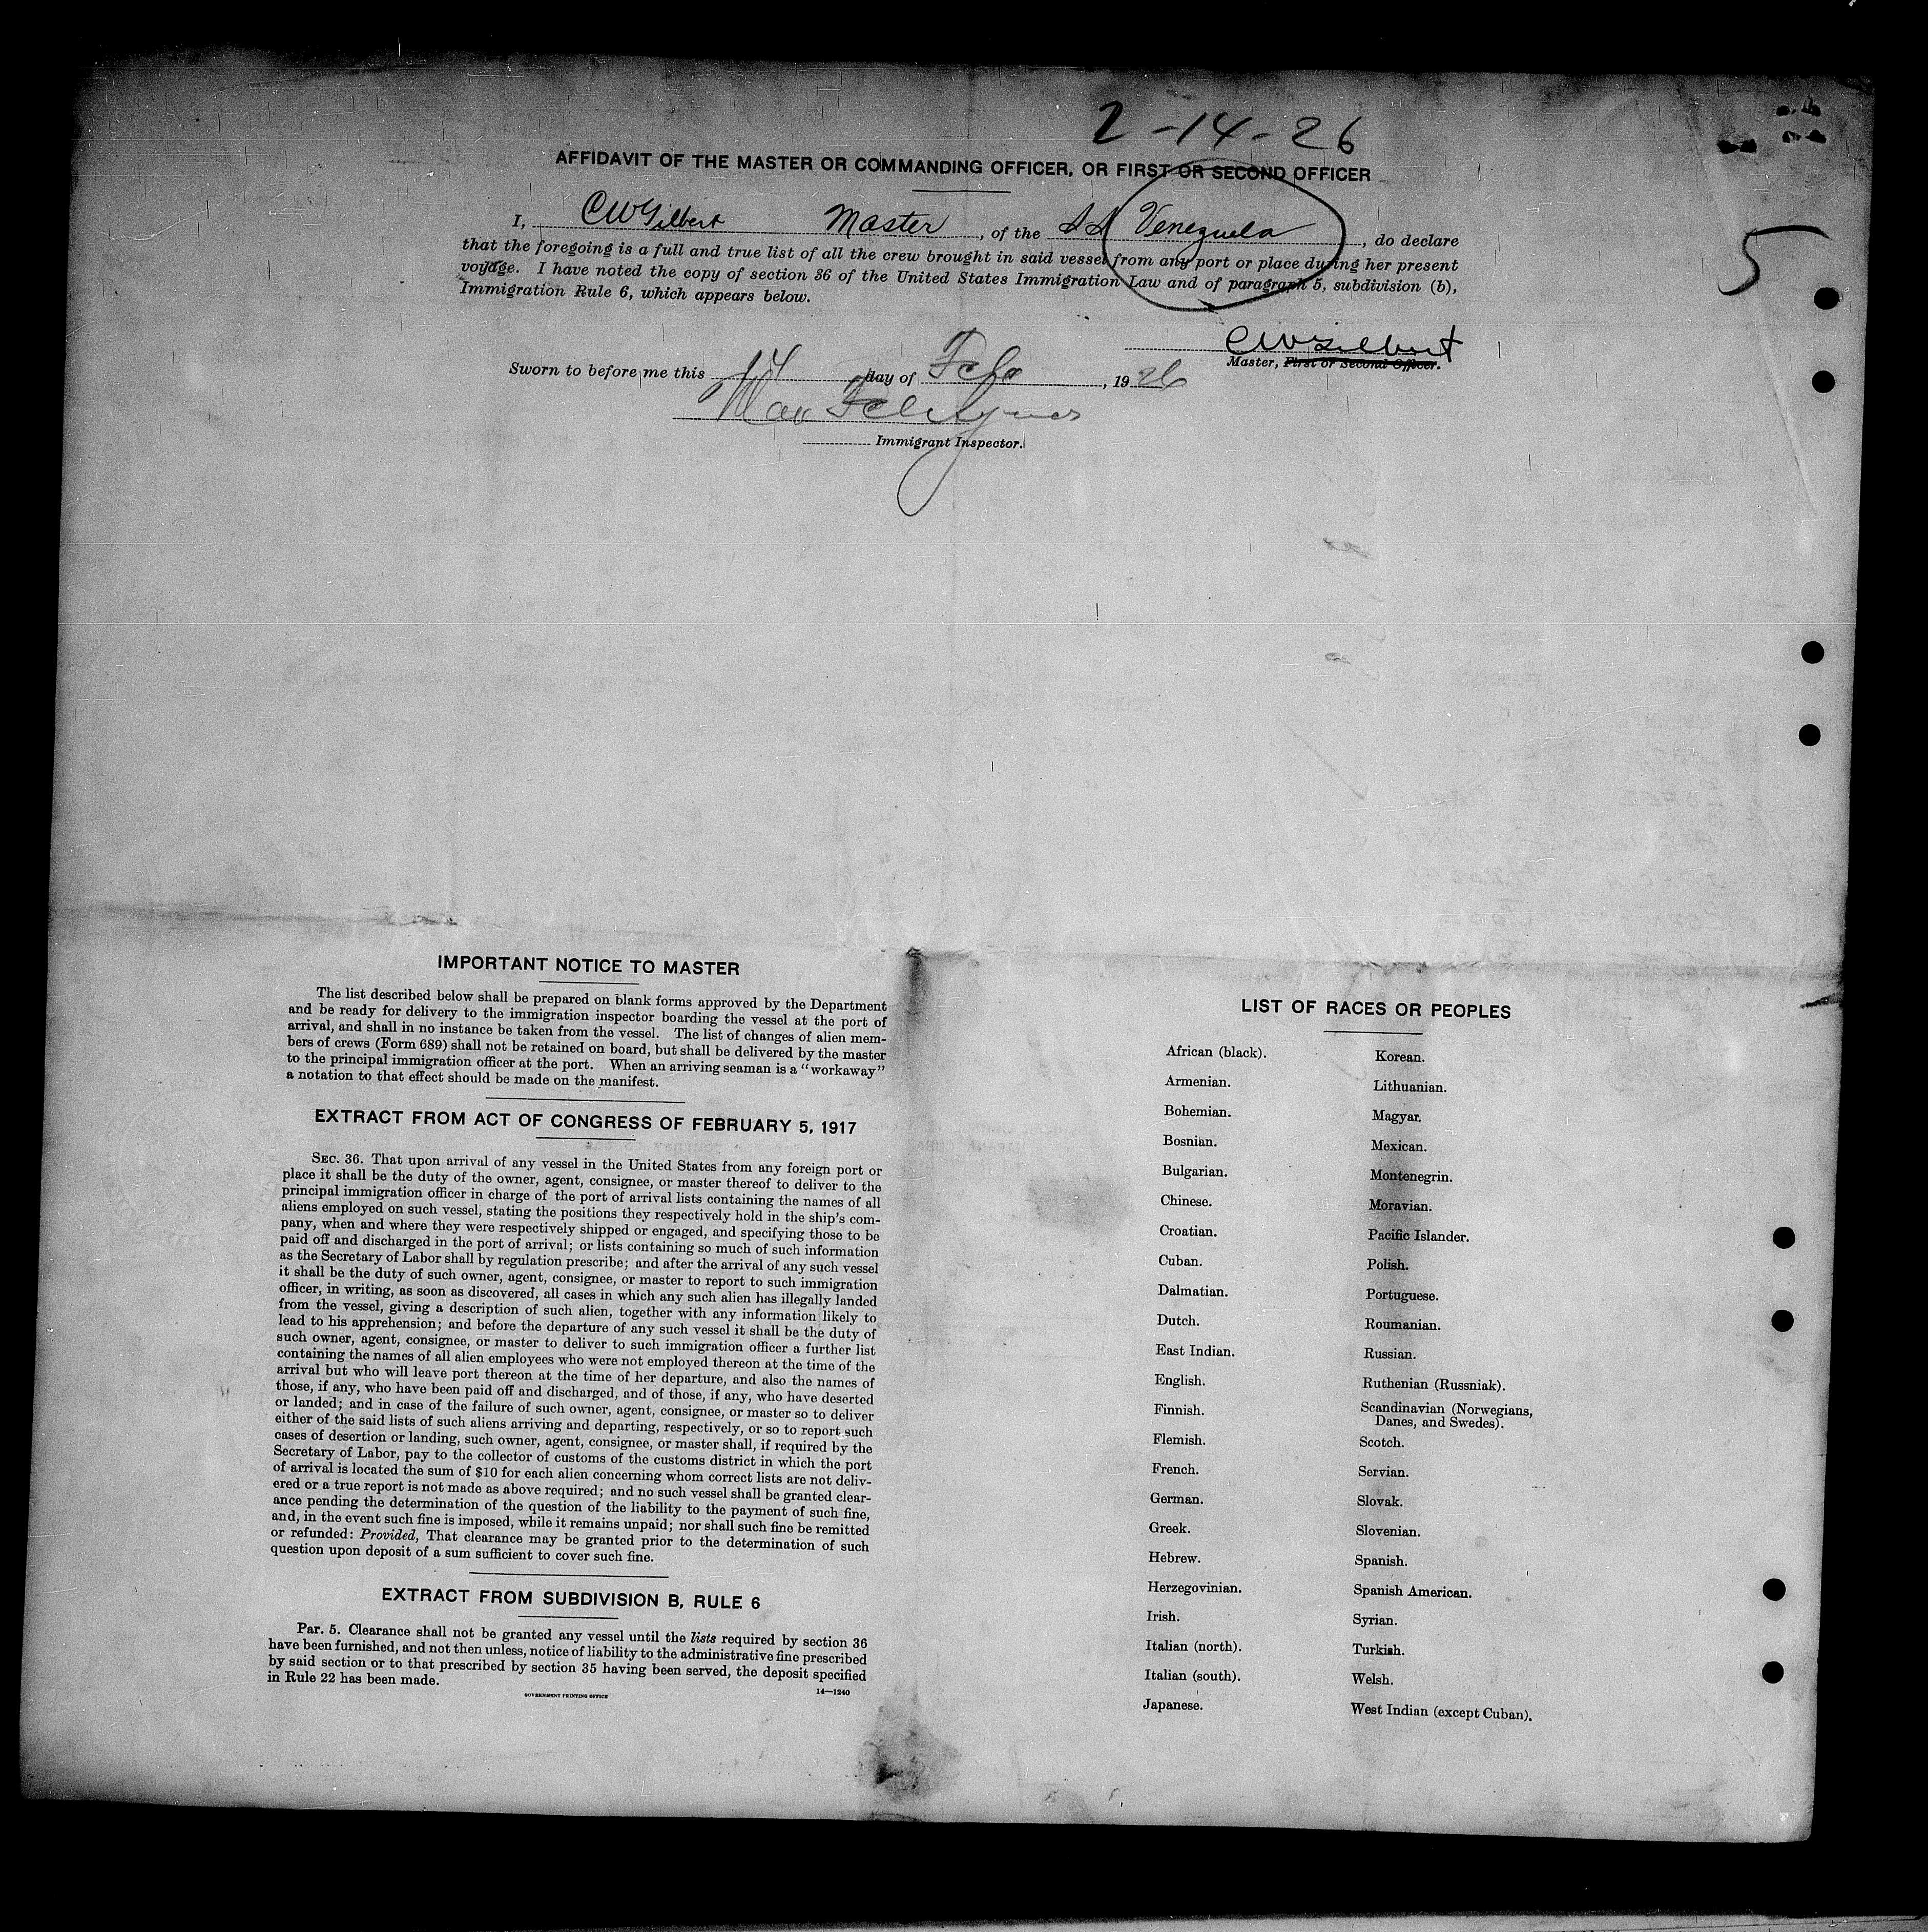 2-14-26
AFFIDAVIT OF THE MASTER OR COMMANDING OFFICER, OR FIRST OR SECOND OFFICER
5
I, CWGilbert Master, of the SS Venezuela, do declare
that the foregoing is a full and true list of all the crew brought in said vessel from any port or place during her present
voyage. I have noted the copy of section 36 of the United States Immigration Law and of paragraph 5, subdivision (b),
Immigration Rule 6, which appears below.
CWGilbert
Master, First or Second Officer.
Sworn to before me this 14 day of Feb, 1926
Max
Immigrant Inspector.
IMPORTANT NOTICE TO MASTER
The list described below shall be prepared on blank forms approved by the Department
and be ready for delivery to the immigration inspector boarding the vessel at the port of
arrival, and shall in no instance be taken from the vessel. The list of changes of alien mem-
bers of crews (Form 689) shall not be retained on board, but shall be delivered by the master
to the principal immigration officer at the port. When an arriving seaman is a "workaway"
a notation to that effect should be made on the manifest.
EXTRACT FROM ACT OF CONGRESS OF FEBRUARY 5, 1917
SEC. 36. That upon arrival of any vessel in the United States from any foreign port or
place it shall be the duty of the owner, agent, consignee, or master thereof to deliver to the
principal immigration officer in charge of the port of arrival lists containing the names of all
aliens employed on such vessel, stating the positions they respectively hold in the ship's com-
pany, when and where they were respectively shipped or engaged, and specifying those to be
paid off and discharged in the port of arrival; or lists containing so much of such information
as the Secretary of Labor shall by regulation prescribe; and after the arrival of any such vessel
it shall be the duty of such owner, agent, consignee, or master to report to such immigration
officer, in writing, as soon as discovered, all cases in which any such alien has illegally landed
from the vessel, giving a description of such alien, together with any information likely to
lead to his apprehension; and before the departure of any such vessel it shall be the duty of
such owner, agent, consignee, or master to deliver to such immigration officer a further list
containing the names of all alien employees who were not employed thereon at the time of the
arrival but who will leave port thereon at the time of her departure, and also the names of
those, if any, who have been paid off and discharged, and of those, if any, who have deserted
or landed; and in case of the failure of such owner, agent, consignee, or master so to deliver
either of the said lists of such aliens arriving and departing, respectively, or so to report such
cases of desertion or landing, such owner, agent, consignee, or master shall, if required by the
Secretary of Labor, pay to the collector of customs of the customs district in which the port
of arrival is located the sum of $10 for each alien concerning whom correct lists are not deliv-
ered or a true report is not made as above required; and no such vessel shall be granted clear-
ance pending the determination of the question of the liability to the payment of such fine,
and, in the event such fine is imposed, while it remains unpaid; nor shall such fine be remitted
or refunded: Provided, That clearance may be granted prior to the determination of such
question upon deposit of a sum sufficient to cover such fine.
EXTRACT FROM SUBDIVISION B, RULE 6
Par. 5. Clearance shall not be granted any vessel until the lists required by section 36
have been furnished, and not then unless, notice of liability to the administrative fine prescribed
by said section or to that prescribed by section 35 having been served, the deposit specified
in Rule 22 has been made.
GOVERNMENT PRINTING OFFICE 14—1240
LIST OF RACES OR PEOPLES
African (black).
Armenian.
Bohemian.
Bosnian.
Bulgarian.
Chinese.
Croatian.
Cuban.
Dalmatian.
Dutch.
East Indian.
English.
Finnish.
Flemish.
French.
German.
Greek.
Hebrew.
Herzegovinian.
Irish.
Italian (north).
Italian (south).
Japanese.
Korean.
Lithuanian.
Magyar.
Mexican.
Montenegrin.
Moravian.
Pacific Islander.
Polish.
Portuguese.
Roumanian.
Russian.
Ruthenian (Russniak).
Scandinavian (Norwegians,
Danes, and Swedes).
Scotch.
Servian.
Slovak.
Slovenian.
Spanish.
Spanish American.
Syrian.
Turkish.
Welsh.
West Indian (except Cuban).